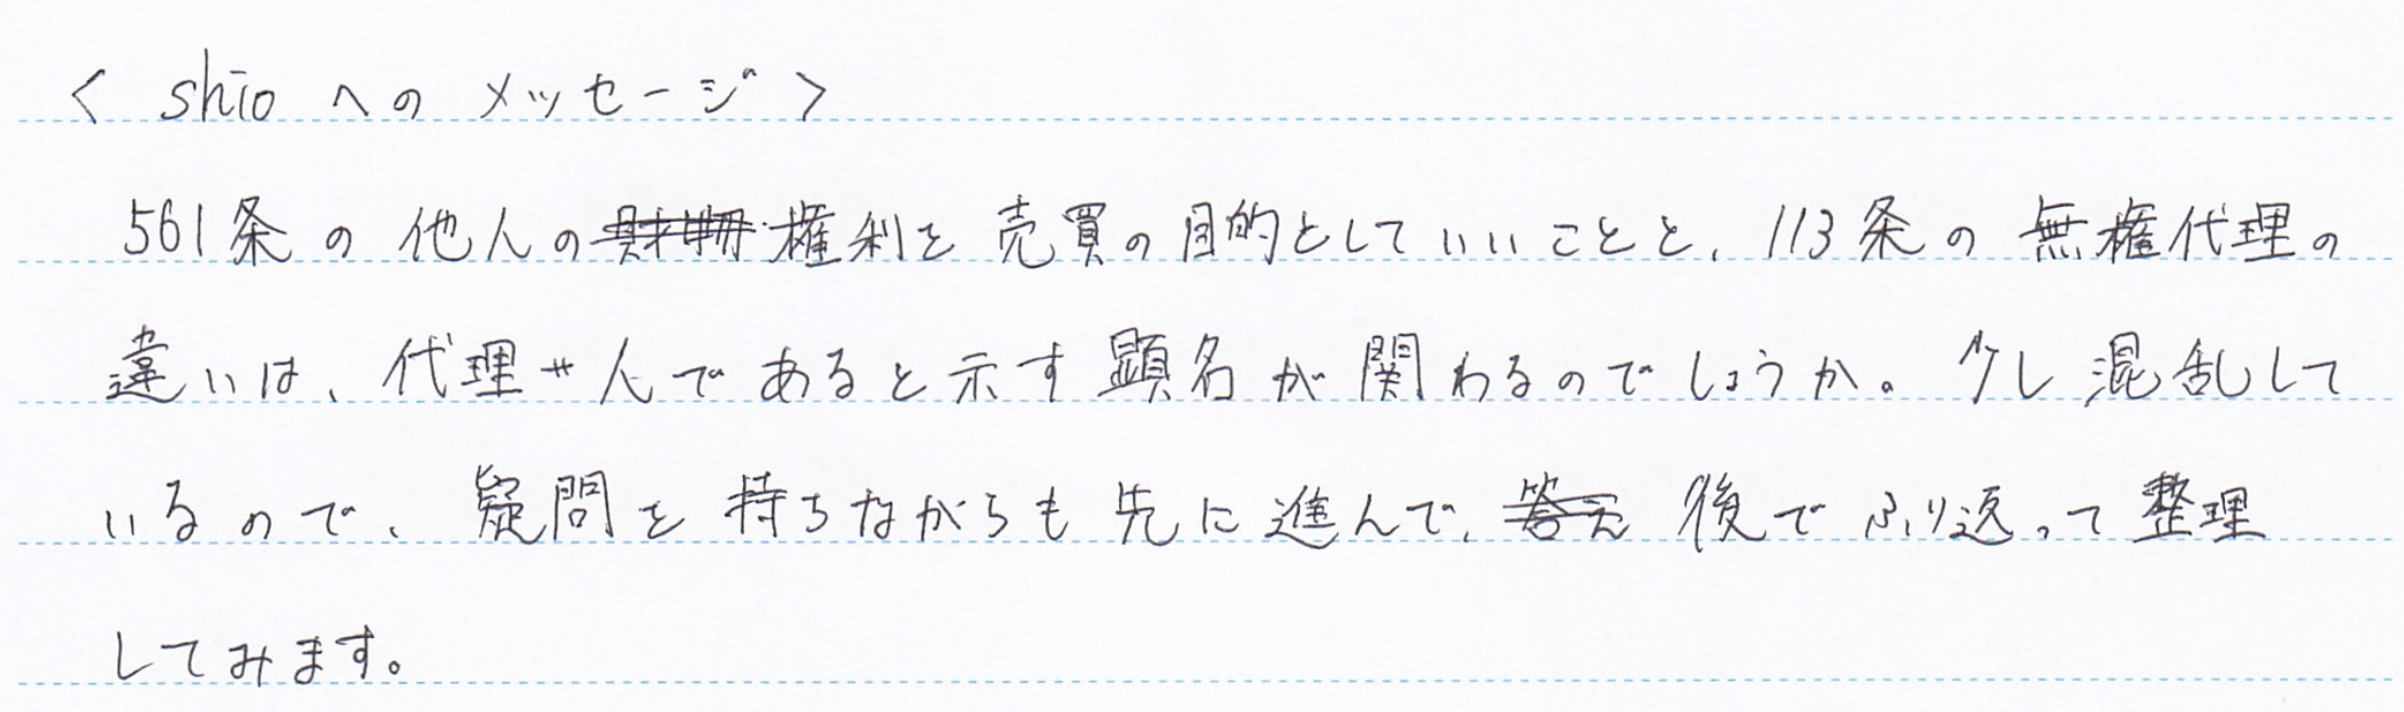 < shioへのメッセージ>
561条の他人の権利を売買の目的としていいことと、113条の無権代理の
違いは、代理人であると示す顕名が関わるのでしょうか。少し混乱して
いるので、疑問を持ちながらも先に進んで、後でふり返って整理
してみます。